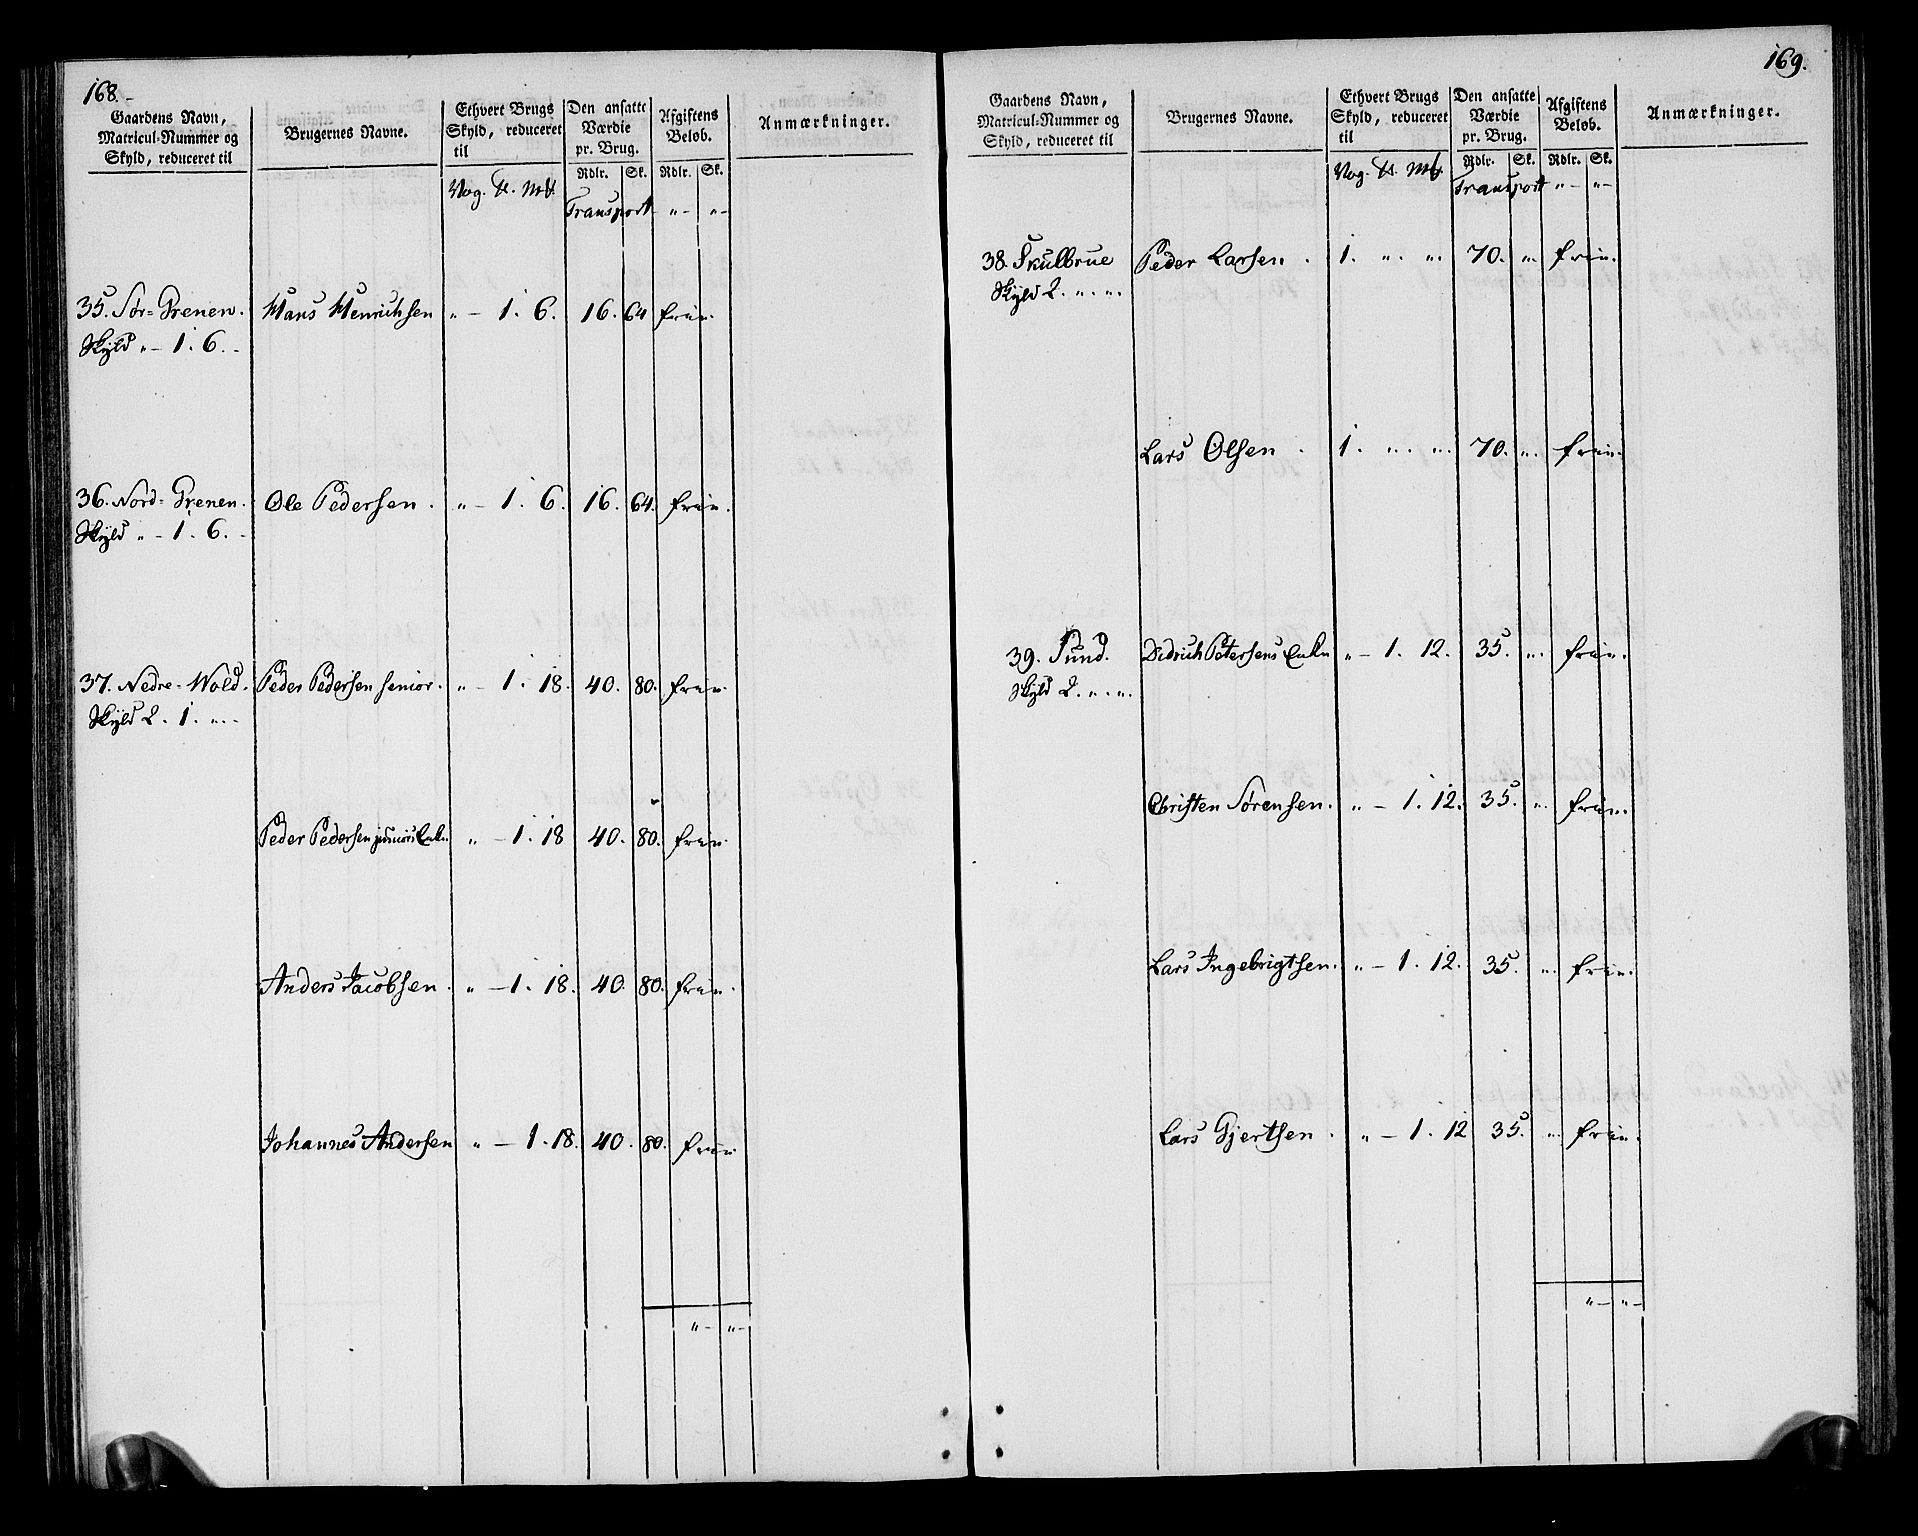 168.
Gaardens Navn, Matricul-Nummer og Skyld, reduceret til
Brugernes Navne.
Ethvert Brugs Skyld, reduceret til
Den ansatte Værdie pr. Brug.
Afgiftens Beløb.
Anmærkninger.
Rdlr. Sk. Rdlr. Sk.
Vog. Transport " - " -
35. Sør-Grenen. Hans Henrichsen " - 1. 6. 16. 64 frie.
Skyld " - 1. 6. -
36. Nord-Grenen. Ole Pedersen. " - 1. 6. 16. 64. frie.
Skyld " - 1. 6. -
37. Nedre-Wold. Peder Pedersen senior. " - 1. 18. 40. 80. frie.
Skyld 2. 1. " -
Peder Pedersen juniors Enke. " - 1. 18 40. 80. frie.
Anders Jacobsen. " - 1. 18. 40. 80. frie.
Johannes Andersen " - 1. 18. 40. 80. frie.
" - " -
169.
Gaardens Navn, Matricul-Nummer og Skyld, reduceret til
Brugernes Navne.
Ethvert Brugs Skyld, reduceret til
Den ansatte Værdie pr. Brug.
Afgiftens Beløb.
Anmærkninger.
Rdlr. Sk. Rdlr. Sk.
Vog. Transport " - " -
38. Skulbrue Peder Larsen. 1. " . " . 70. " . frie.
Skyld 2. " . " .
Lars Olsen. 1. " . " . 70. " . frie.
39. Sund. Didrich Petersens Enke " - 1. 12. 35. " . frie.
Skyld 2. " . " .
Christen Sørensen. " - 1. 12. 35. " . frie.
Lars Ingebrigtsen. " - 1. 12. 35. " . frie.
Lars Gjertsen. " - 1. 12 35. " . frie.
" - " -